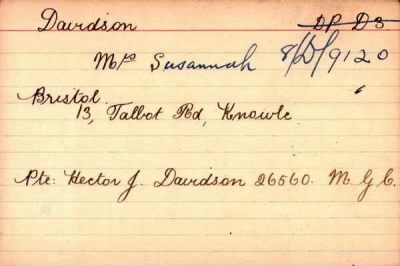 Davidson DP D3
Mrs Susannah 8/D/9120
Bristol.
13, Talbot Rd, Knowle
Pte: Hector J. Davidson 26560. M.G.C.